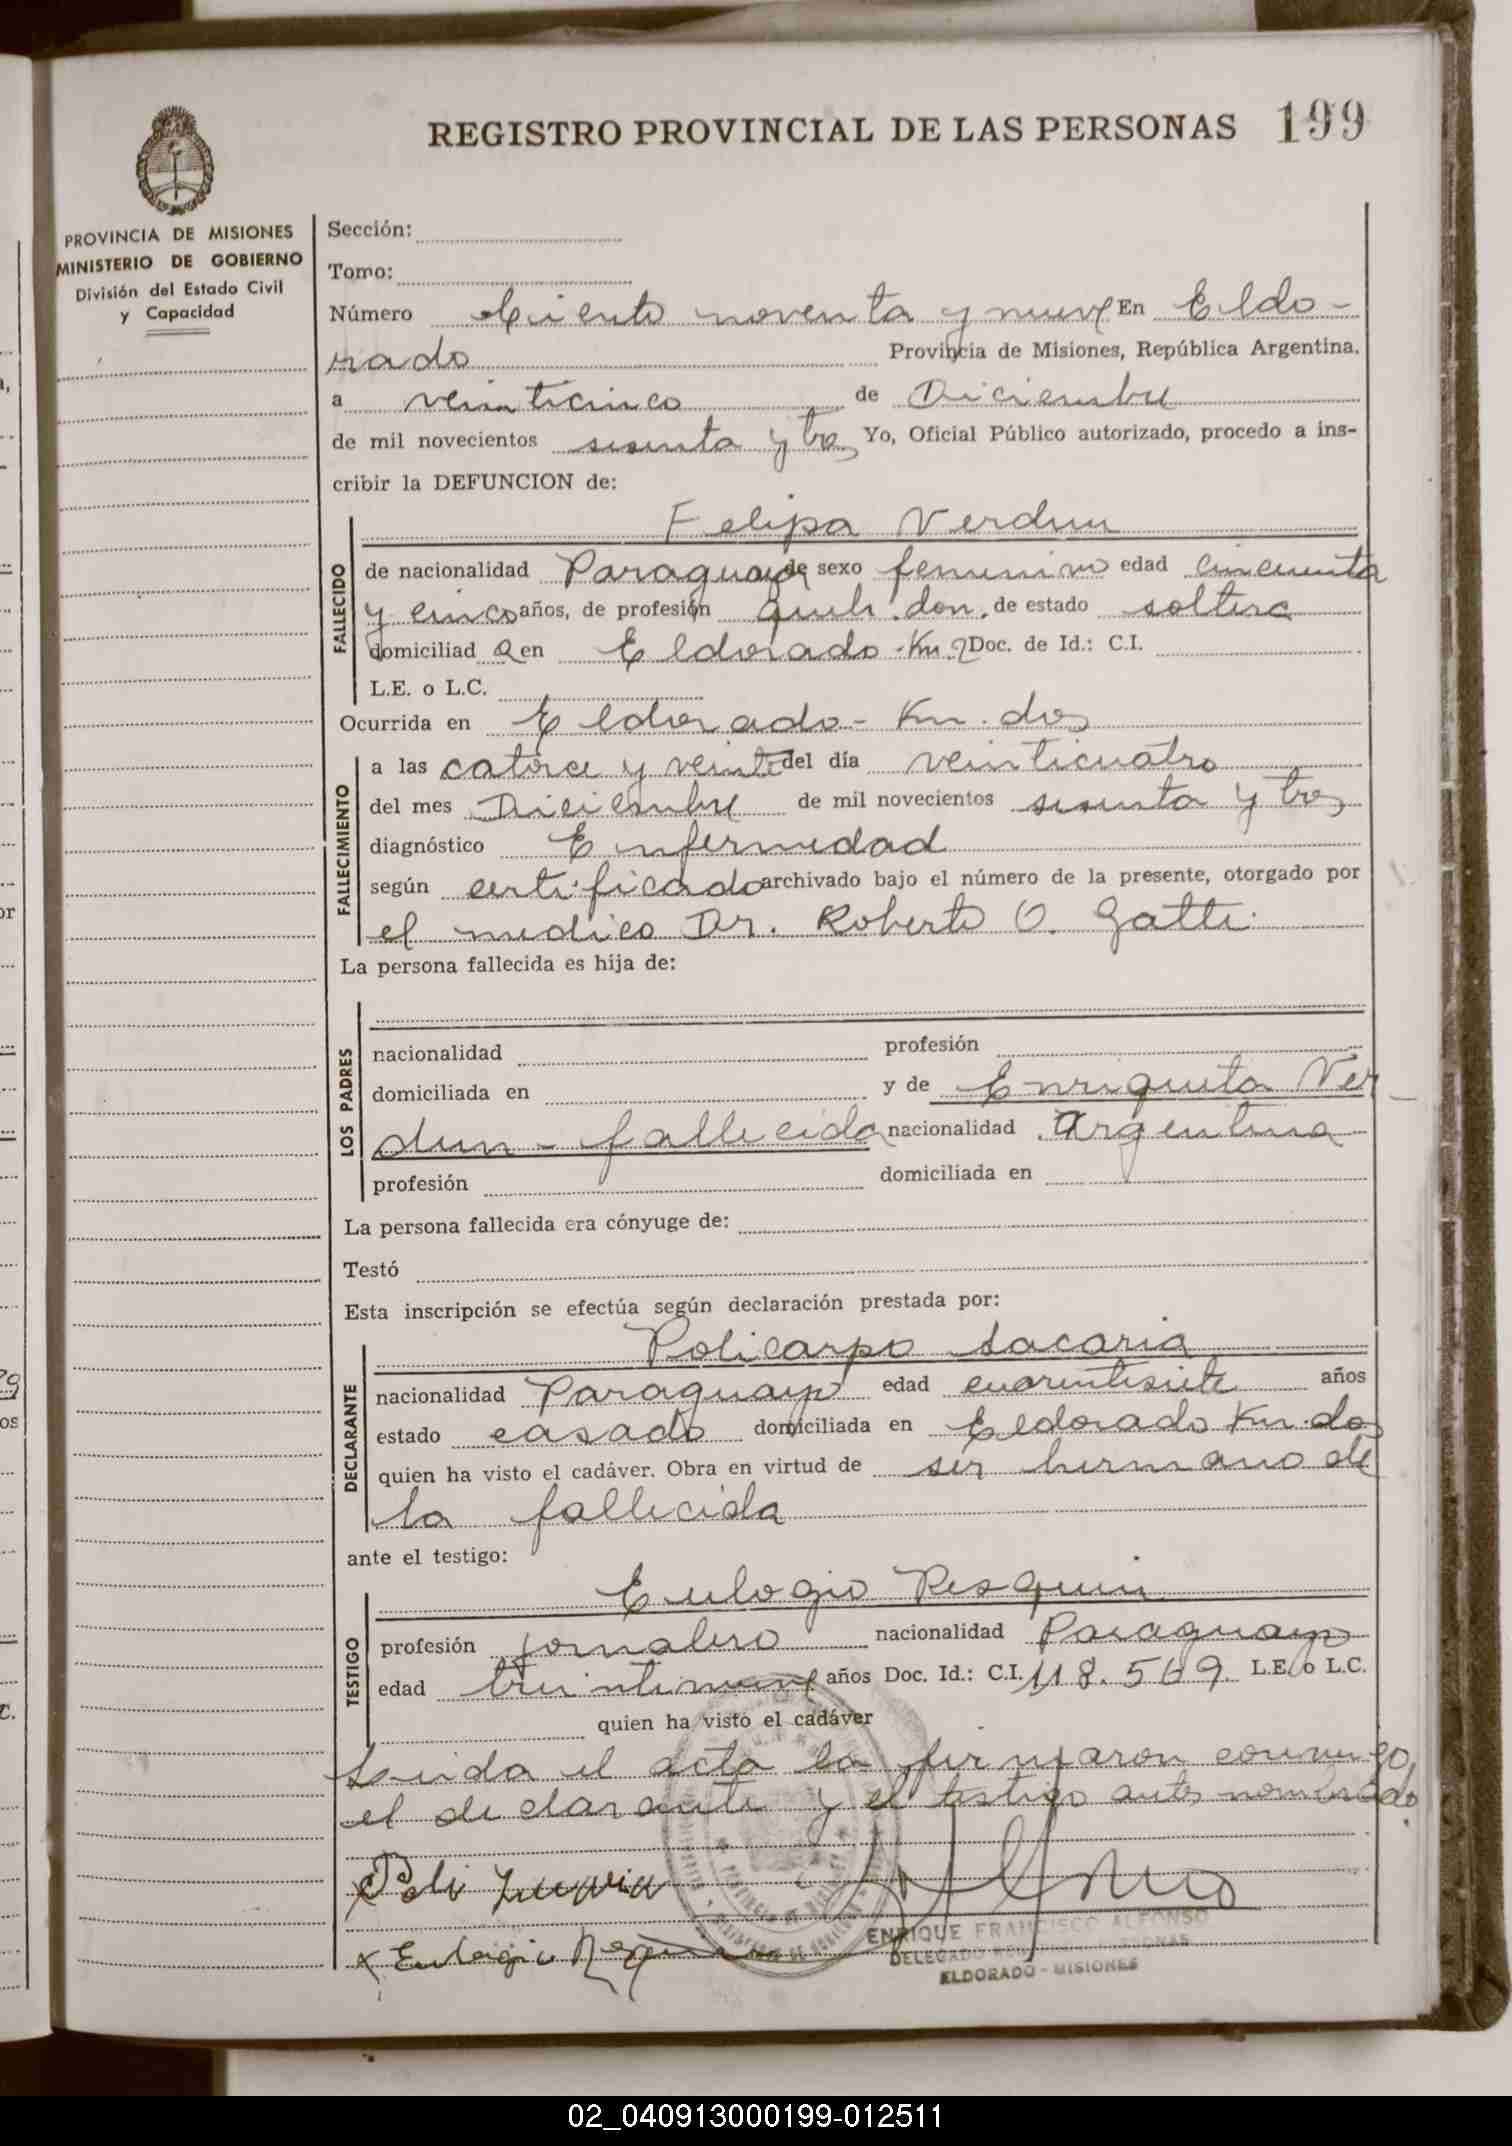 REGISTRO PROVINCIAL DE LAS PERSONAS 199
PROVINCIA DE MISIONES
MINISTERIO DE GOBIERNO
División del Estado Civil
y Capacidad
Sección:
Tomo:
Número Ciento noventa y nueve En Eldo-
rado Provincia de Misiones, República Argentina,
a veinticinco de Diciembre
de mil novecientos sesenta y tres Yo, Oficial Público autorizado, procedo a ins-
cribir la DEFUNCION de:
FALLECIDO
Felipa Verdun
de nacionalidad Paraguaya de sexo femenino edad cincuenta
y cinco años, de profesión Queh. dom. de estado soltera
domiciliad a en Eldorado - Km. 2 Doc. de Id.: C.I.
L.E. o L.C.
Ocurrida en Eldorado - Km. dos
FALLECIMIENTO
a las catorce y veinte del día veinticuatro
del mes Diciembre de mil novecientos sesenta y tres
diagnóstico Enfermedad
según certificado archivado bajo el número de la presente, otorgado por
el medico Dr. Roberto O. Gatti.
La persona fallecida es hija de:
LOS PADRES
nacionalidad profesión
domiciliada en y de Enriqueta Ver-
dun - fallecida nacionalidad Argentina
profesión domiciliada en
La persona fallecida era cónyuge de:
Testó
Esta inscripción se efectúa según declaración prestada por:
DECLARANTE
Policarpo Sacaria
nacionalidad Paraguayo edad cuarentisiete años
estado casado domiciliada en Eldorado Km. dos
quien ha visto el cadáver. Obra en virtud de ser hermano de
la fallecida
ante el testigo:
TESTIGO
Eulogio Resquin
profesión jornalero nacionalidad Paraguayo
edad treintinueve años Doc. Id.: C.I. 118.569. L.E. o L.C.
quien ha visto el cadáver
Leida el acta la firmaron conmigo
el declarante y el testigo antes nombrado.
x Poli
x Eulogio Resquin
ENRIQUE FRANCISCO ALFONSO
DELEGADO
ELDORADO - MISIONES
02_040913000199-012511